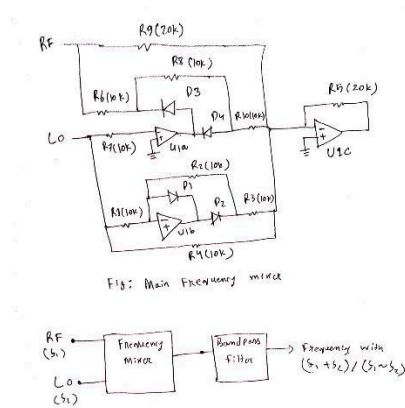 R9(20k)
RF
R8(10k)
R6(10k)
D3
R5(20k)
D4
R10(10k)
LO
R7(10k)
U1a
U1C
R2(10k)
D1
R1(10k)
D2
R3(10k)
U1b
R4(10k)
Fig: Main Frequency mixer
RF
(S1)
Frequency
mixer
Bandpass
filter
Frequency with
(S1+S2)/(S1~S2)
LO
(S2)